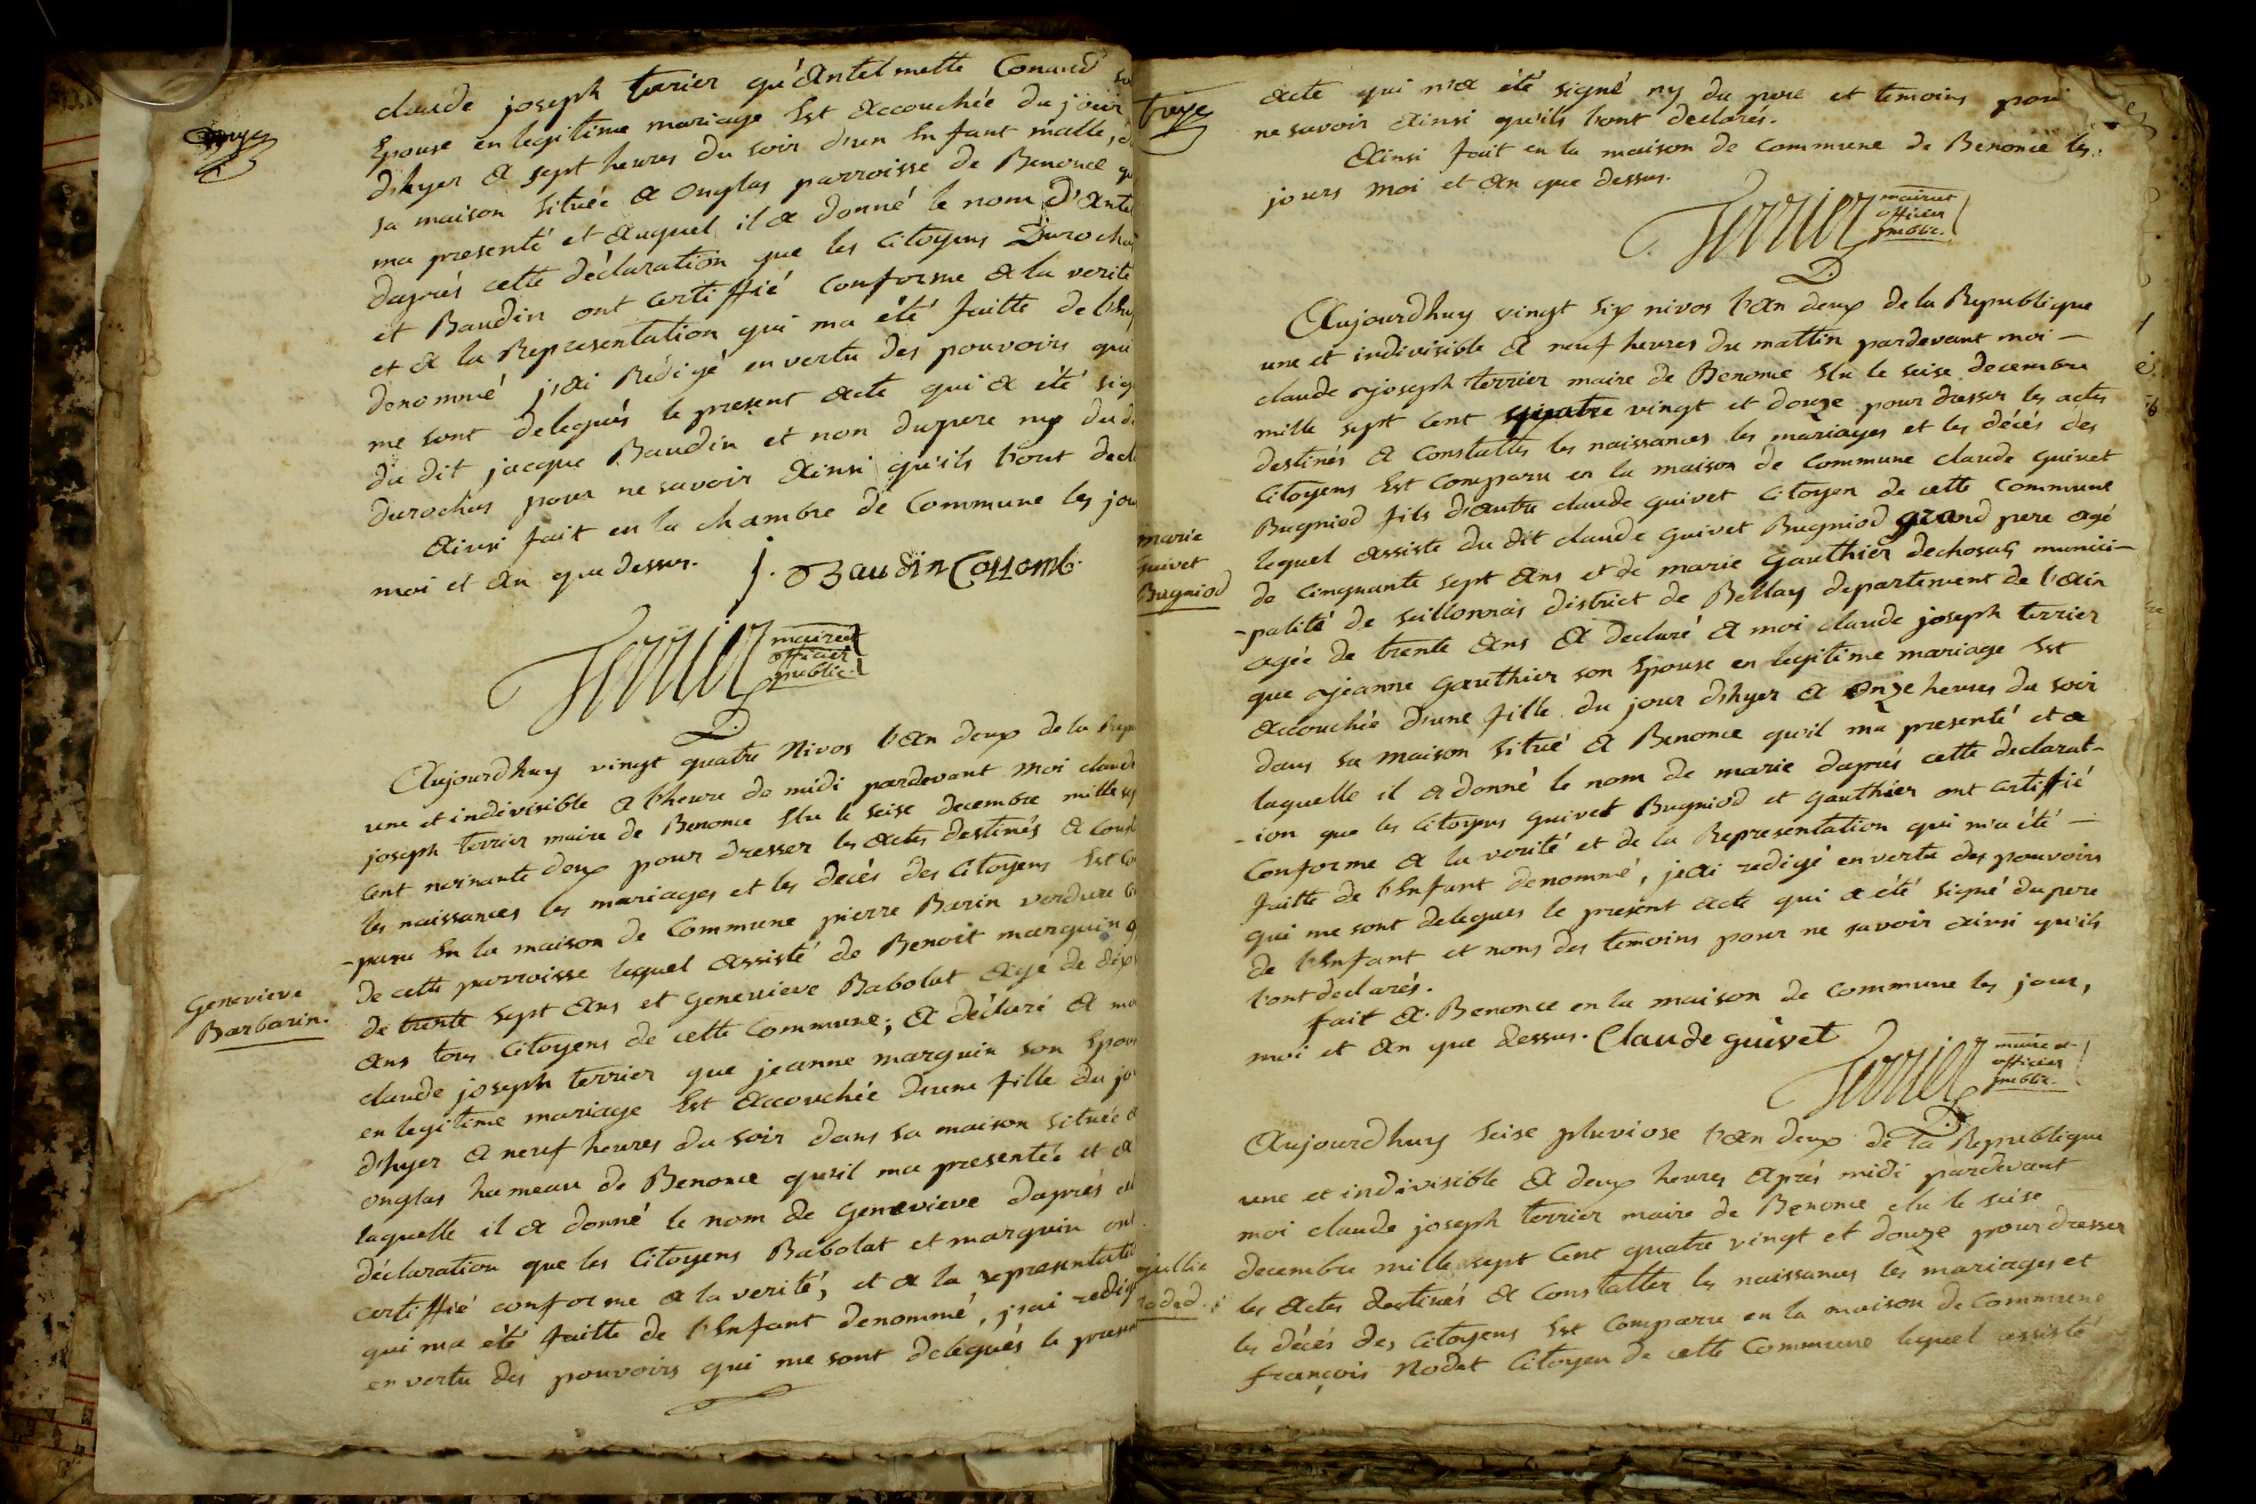 claude joseph terrier qu'Antelmette Conand
Epouse en legitime mariage Est Accouchée du jour
d'hyer A sept heures du soir d'un Enfant malle,
sa maison située A onglas parroisse de Benonce
ma presenté et Auquel il A donné le nom d'
daprés cette déclaration que les Citoyens
et Baudin ont certiffié Conforme A la verité
et A la Representation qui ma été faitte de
denommé j'Ai Rédigé en vertu des pouvoirs qui
me sont delegués le present Acte qui A été
du dit jacque Baudin et non du pere ny du
durochas pour ne savoir Ainsi qu'ils l'ont
Ainsi fait en la chambre de Commune les
moi et An que dessus. j. Baudin Collomb.
Terrier maire et
officier
public.
Aujourdhuy vingt quatre Nivos l'An deux de la
une et indivisible A l'heure de midi pardevant moi
joseph terrier maire de Benonce Elu le seise decembre mille
Cent nonante deux pour dresser les Actes destinés A
les naissances les mariages et les decés des Citoyens Est
-paru En la maison de Commune pierre Barin verdure
de cette parroisse lequel Assisté de Benoit marguin
Genevieve
Barbarin.
de trente sept Ans et Genevieve Babolat Agé de
Ans tous Citoyens de cette Commune; A déclaré A
claude joseph terrier que jeanne marguin son
en legitime mariage Est Accouchée d'une fille du
d'hyer A neuf heures du soir dans sa maison située
onglas hameau de Benonce qu'il ma presentée et A
laquelle il A donné le nom de Genevieve daprés
déclaration que les Citoyens Babolat et marguin
certiffié conforme A la verité, et A la
qui ma été faitte de l'Enfant denommé, j'ai
en vertu des pouvoirs qui me sont delegués le
treze
Acte qui n'A été signé ny du pere et temoins pour
ne savoir Ainsi qu'ils l'ont declarés.
Ainsi fait en la maison de Commune de Benonce les
jours moi et An que dessus.
Terrier maire et
officier
public.
Aujourdhuy vingt six nivos l'An deux de la Republique
une et indivisible A neuf heures du mattin pardevant moi —
claude joseph terrier maire de Benonce Elu le seise decembre
mille sept Cent quatre vingt et douze pour dresser les actes
destinés A Constatter les naissances les mariages et les décés des
Citoyens Est Comparu en la maison de Commune claude guivet
marie
guivet
Bugniod
Bugniod fils d'Autre claude guivet Citoyen de cette Commune
lequel Assisté du dit claude guivet Bugniod grand pere Agé
de Cinquante sept Ans et de marie Gauthier dechosas munici-
-palité de seillonnas district de Bellay departement de l'Ain
Agée de trente Ans A declaré A moi claude joseph terrier
que jeanne Gauthier son Epouse en legitime mariage Est
Accouchée d'une fille du jour d'hyer A onze heures du soir
dans sa maison situé A Benonce qu'il ma presenté et A
laquelle il A donné le nom de marie daprés cette declarat-
-ion que les Citoyens guivet Bugniod et Gauthier ont certiffié
Conforme A la verité et de la Representation qui m'a été —
faitte de l'Enfant denommé, j'Ai redigé en vertu des pouvoirs
qui me sont delegues le present Acte qui A été signé du pere
de l'Enfant et nons des temoins pour ne savoir Ainsi qu'ils
l'ont declarés.
fait A Benonce en la maison de Commune les jour,
moi et An que dessus. Claude guivet
Terrier maire et
officier
public.
Aujourdhuy seise pluviose l'An deux de la Republique
une et indivisible A deux heures Aprés midi pardevant
moi claude joseph terrier maire de Benonce elu le seise
decembre mille sept Cent quatre vingt et douze pour dresser
les Actes destinés A Constatter les naissances les mariages et
les décés des Citoyens Est Comparu en la maison de Commune
françois Nodet Citoyen de cette Commune lequel assisté